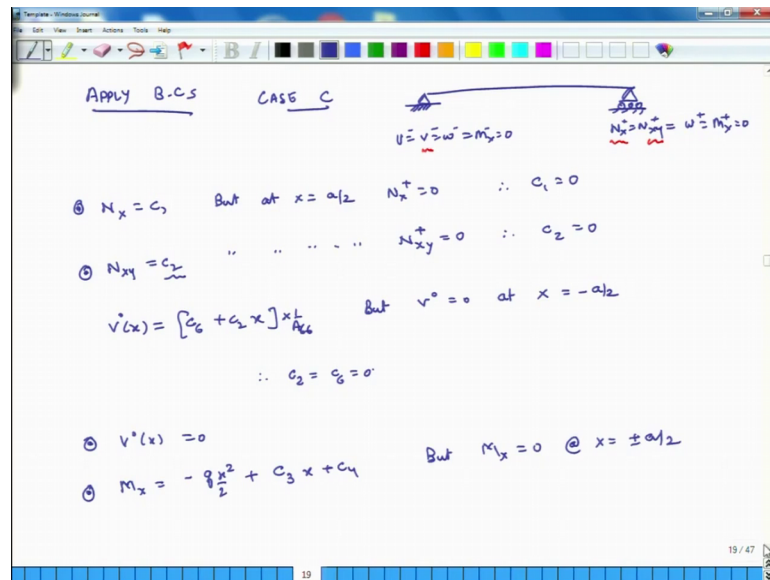 Template - Windows Journal
File Edit View Insert Actions Tools Help
APPLY B.C.S CASE C
U⁻=V⁻=W⁻=M⁻ₓ=0
Nₓ⁺=Nₓᵧ⁺= W⁺=Mₓ⁺=0
Nₓ = C₁ But at x = a/2 Nₓ⁺=0 ∴ C₁ = 0
Nₓᵧ = C₂ " " " " " Nₓᵧ⁺ = 0 ∴ C₂ = 0
V°(x) = [C₆ + C₂ x] × 1/A₆₆ But V° = 0 at x = -a/2
∴ C₂ = C₆ = 0
V°(x) = 0
Mₓ = - qx²/2 + C₃ x + C₄ But Mₓ = 0 @ x = ± a/2
19 / 47
19